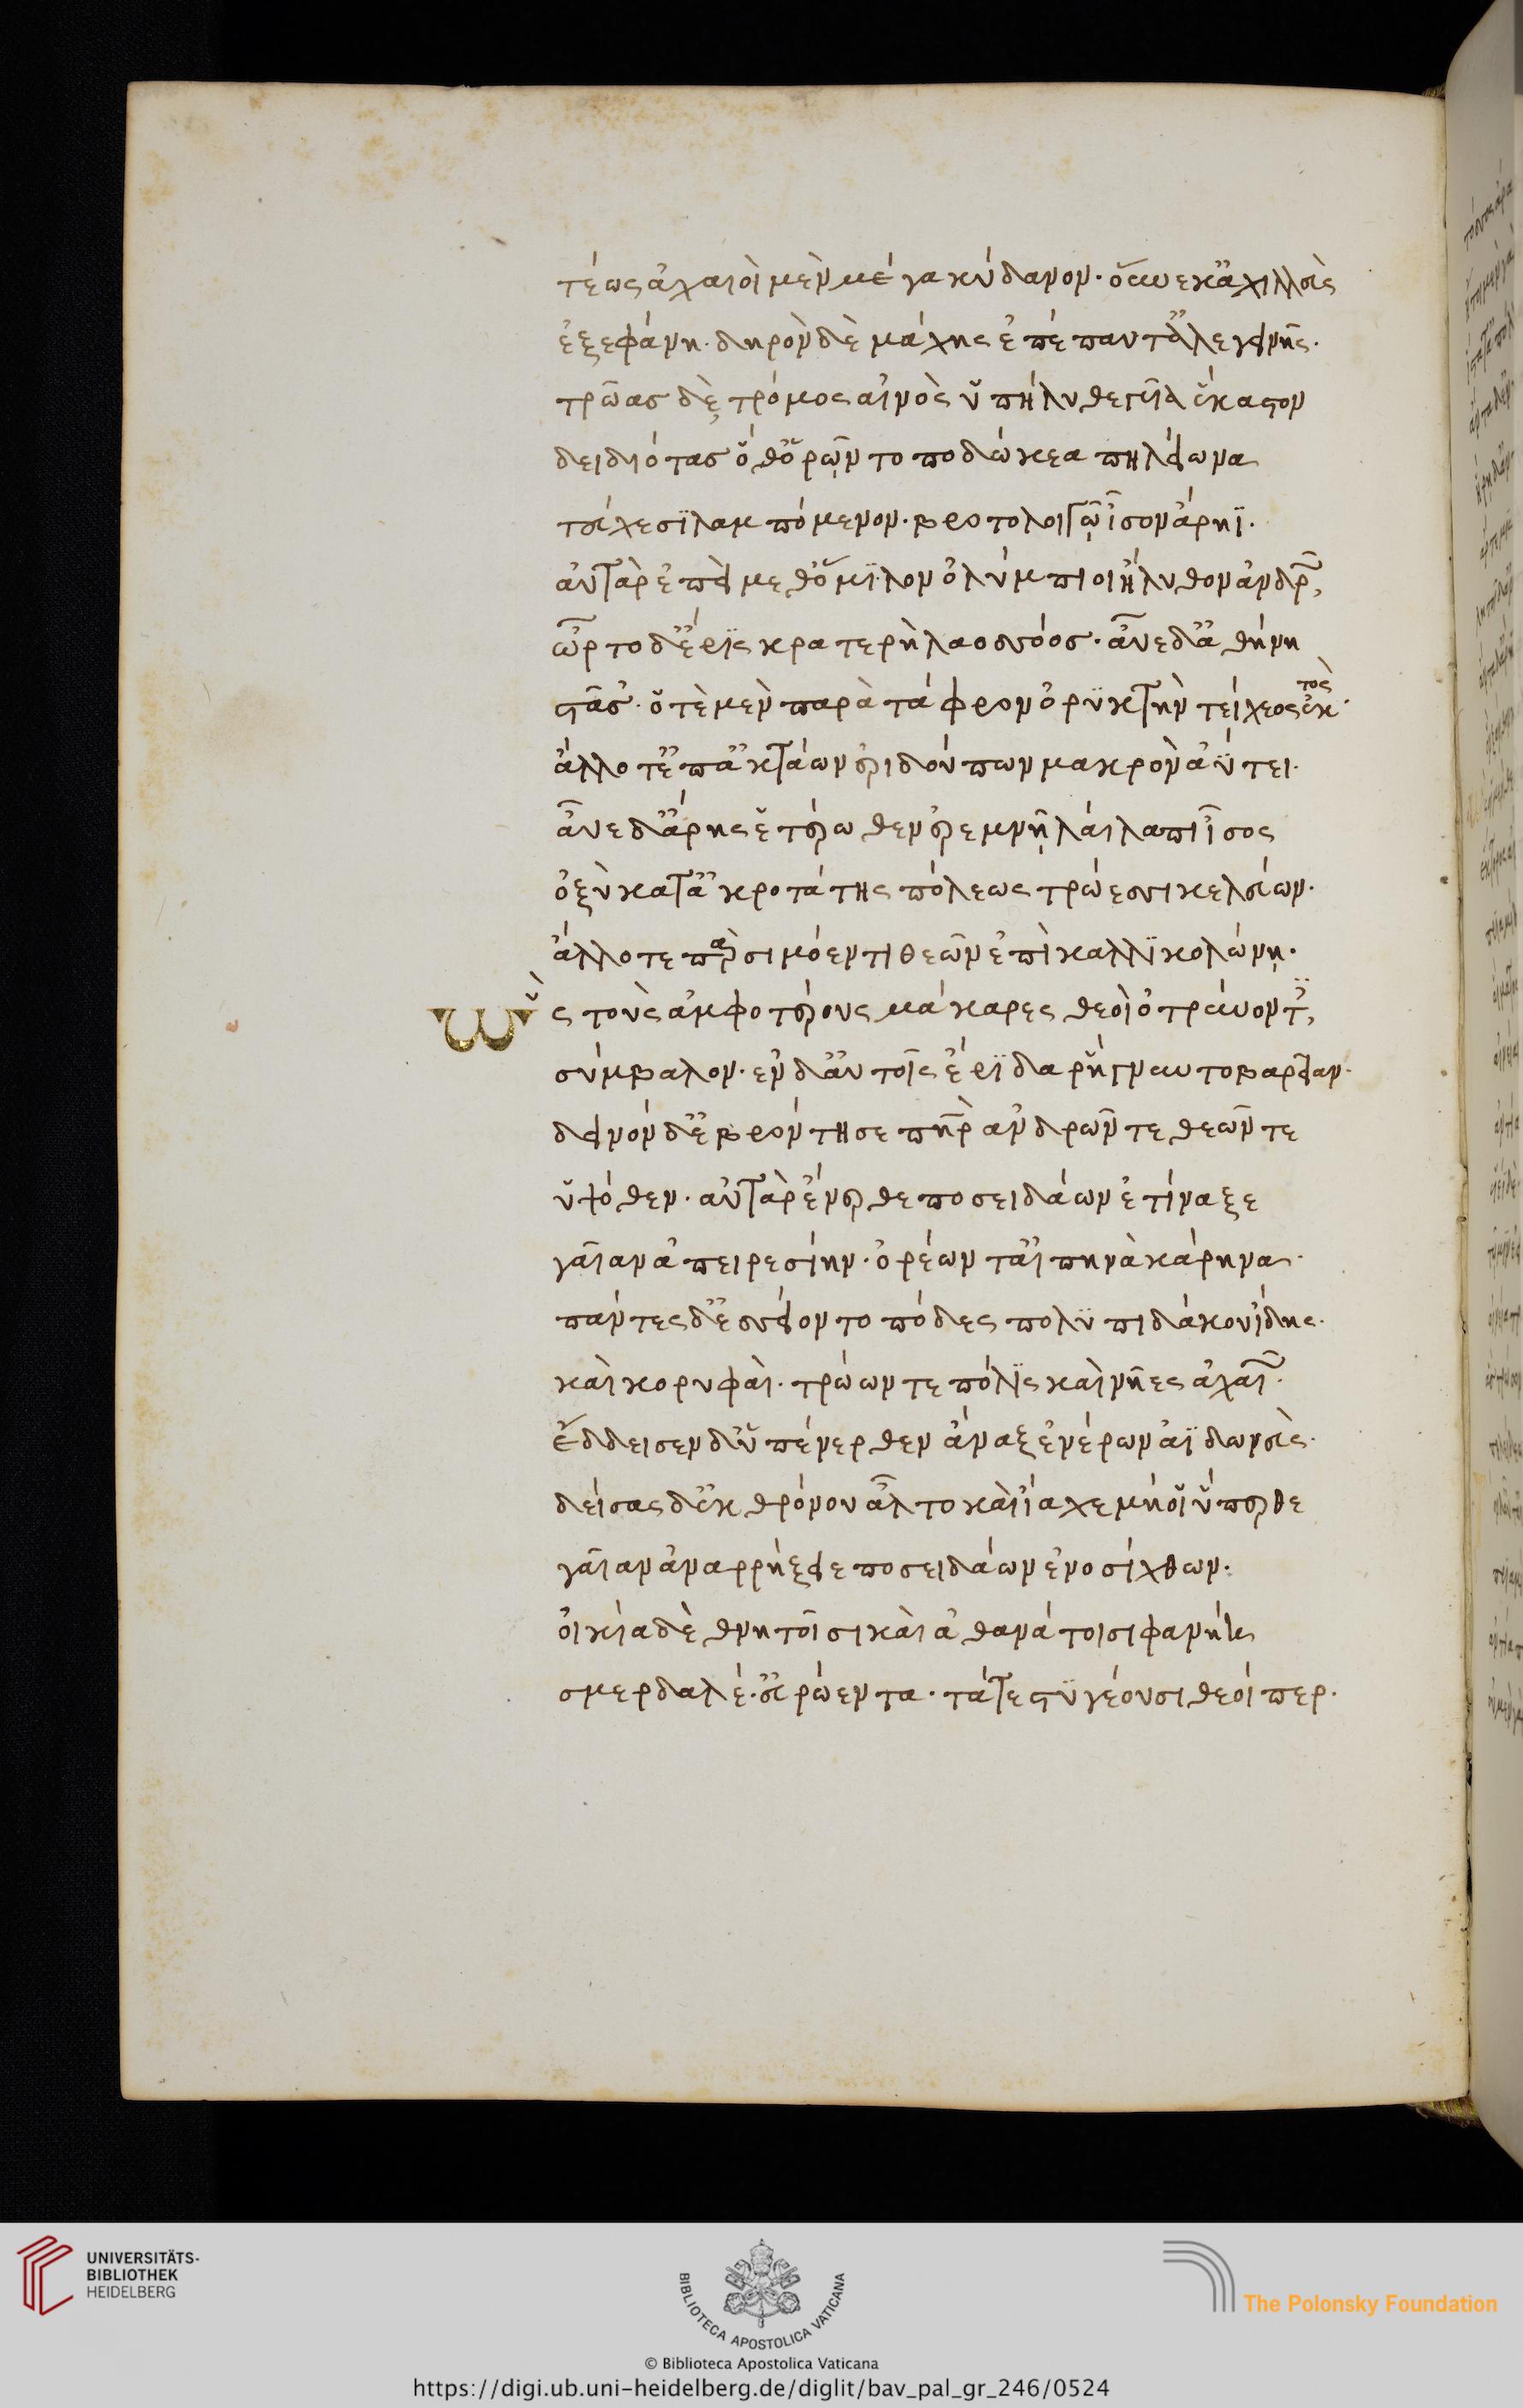 τέως ἀχαιοὶ μὲν μέγα κύδανον· οὕνεκ' ἀχιλλεὺς
ἐξεφάνη· δηρὸν δὲ μάχης ἐπέπαυτ' ἀλεγεινῆς·
τρῶας δὲ τρόμος αἰνὸς ὑπήλυθε γυῖα ἕκαστον
δειδιότας ὅθ' ὁρῶντο ποδώκεα πηλείωνα
τεύχεσϊ λαμπόμενον· βροτολοιγῷ ἶσον ἄρηϊ·
αὐτὰρ ἐπεὶ μεθ' ὅμϊλον ὀλύμπιοι ἤλυθον ἀνδρῶν,
ὦρτο δ' ἔρϊς κρατερὴ λαοσσόος· αὖε δ' ἀθήνη
στᾶσ'· ὁτὲ μὲν παρὰ τάφρον ὀρϋκτὴν τείχεος ἐκτός·
ἄλλοτ' ἐπ' ἀκτάων ἐριδούπων μακρὸν ἀΰτει·
αὖε δ' ἄρης ἑτέρωθεν ἐρεμνῇ λαίλαπι ἶσος
ὀξὺ κατ' ἀκροτάτης πόλεως τρώεσσι κελεύων·
ἄλλοτε πὰρ σιμόεντι θεῶν ἐπὶ καλλϊκολώνῃ·
ὣς τοὺς ἀμφοτέρους μάκαρες θεοὶ ὀτρύνοντες,
σύμβαλον· ἐν δ' αὐτοῖς ἔρϊδα ῥήγνυντο βαρεῖαν·
δεινὸν δ' ἐβρόντησε πατὴρ ἀνδρῶν τε θεῶν τε
ὑψόθεν· αὐτὰρ ἔνερθε ποσειδάων ἐτίναξε
γαῖαν ἀπειρεσίην· ὀρέων τ' αἰπηνὰ κάρηνα·
πάντες δ' ἐσσείοντο πόδες πολϋπιδάκου ἴδης·
καὶ κορυφαὶ· τρώων τε πόλϊς καὶ νῆες ἀχαιῶν·
ἔδδεισεν δ' ὑπένερθεν ἄναξ ἐνέρων ἀϊδωνεὺς·
δείσας δ' ἐκ θρόνου ἆλτο καὶ ἴαχε μή οἱ ὕπερθε
γαῖαν ἀναρρήξειε ποσειδάων ἐνοσίχθων·
οἰκία δὲ θνητοῖσι καὶ ἀθανάτοισι φανήῃ
σμερδαλέ' εὐρώεντα· τάτε στϋγέουσι θεοί περ·
UNIVERSITÄTS-
BIBLIOTHEK
HEIDELBERG
BIBLIOTECA APOSTOLICA VATICANA
The Polonsky Foundation
© Biblioteca Apostolica Vaticana
https://digi.ub.uni-heidelberg.de/diglit/bav_pal_gr_246/0524